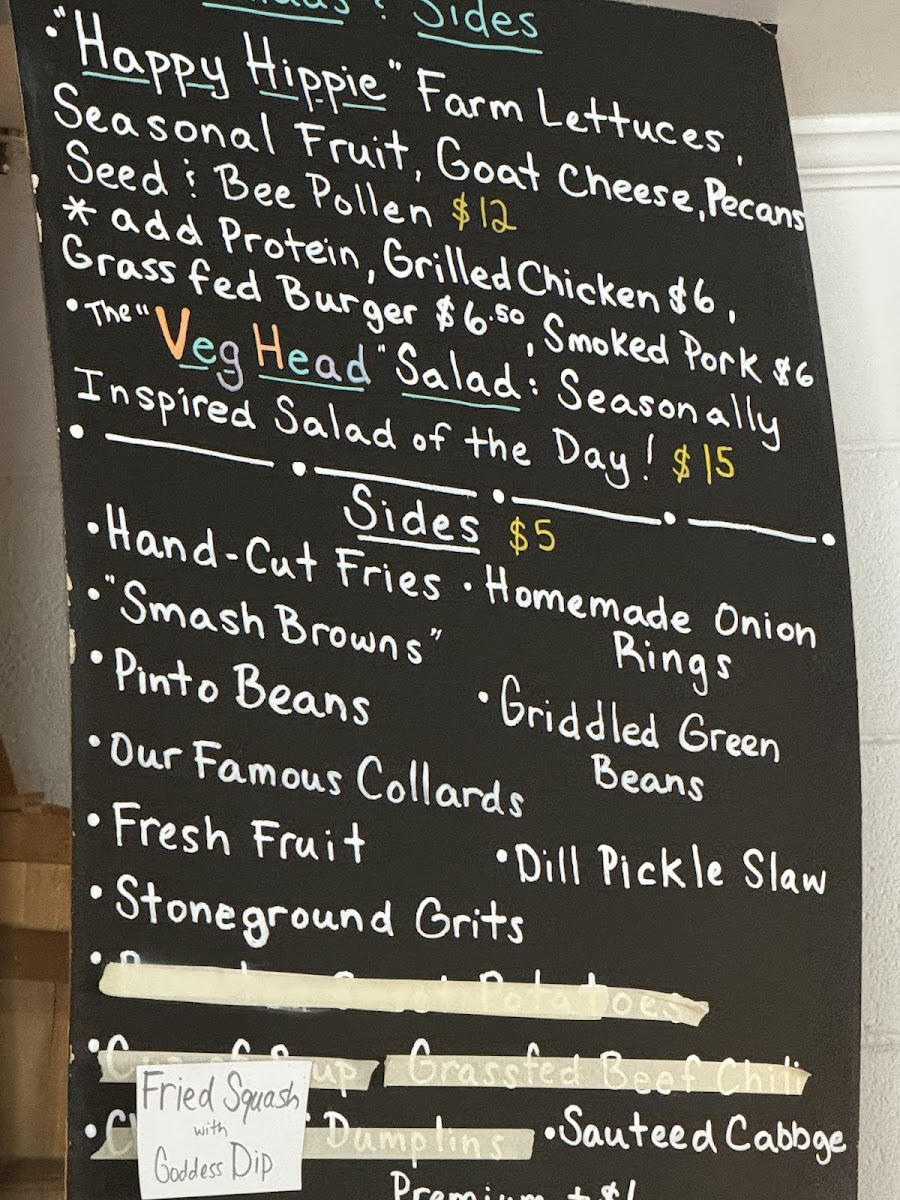 Salads & Sides
• "Happy Hippie" Farm Lettuces,
Seasonal Fruit, Goat Cheese, Pecans
Seed & Bee Pollen $12
* add Protein, Grilled Chicken $6,
Grassfed Burger $6.50, Smoked Pork $6
• The "Veg Head" Salad: Seasonally
Inspired Salad of the Day! $15
Sides $5
• Hand-Cut Fries • Homemade Onion
Rings
• "Smash Browns"
• Pinto Beans • Griddled Green
Beans
• Our Famous Collards
• Fresh Fruit • Dill Pickle Slaw
• Stoneground Grits
• Potatoes
• Grassfed Beef Chili
• Dumplins • Sauteed Cabbge
Fried Squash
with
Goddess Dip
Premium + $1